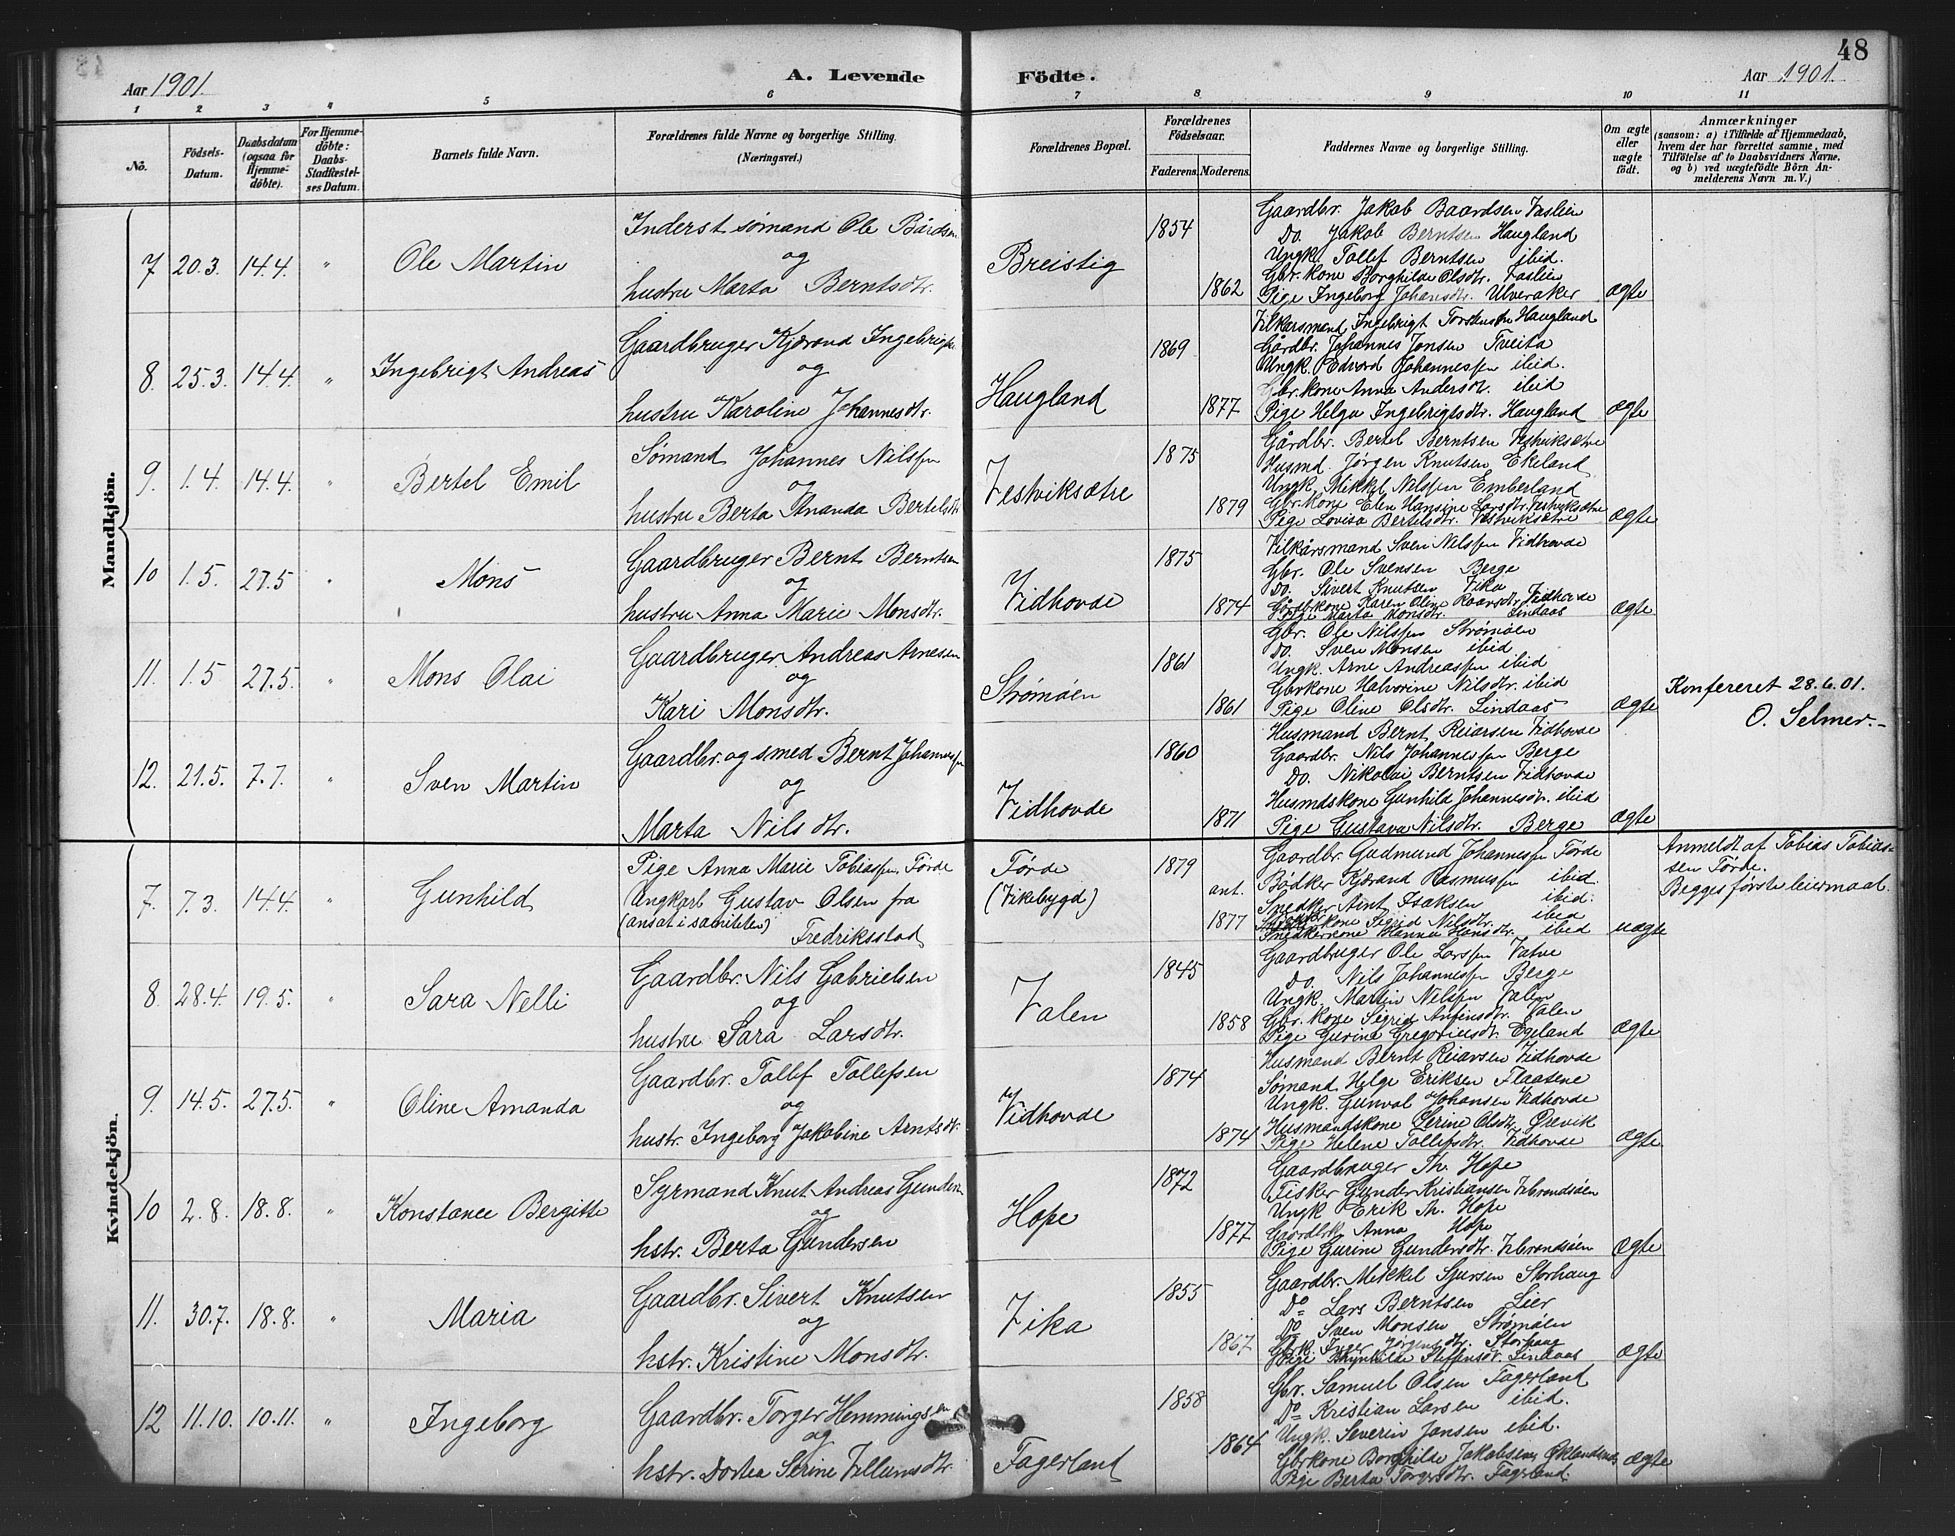 48
Aar 1901. A. Levende Födte. Aar 1901.
1 2 3 " 5 6 7 8 9 10 11
No.
Födsels-Datum.
Daabsdatum (ogsaa for Hjemmedöbte).
For Hjemmedöbte: Daabs-Stadfæstelses Datum.
Barnets fulde Navn.
Forældrenes fulde Navne og borgerlige Stilling. (Næringsvei.)
Forældrenes Bopæl.
Forældrenes Födselsaar.
Faderens. Moderens.
Faddernes Navne og borgerlige Stilling.
Om ægte eller uægte födt.
Anmærkninger
(saasom: a) i Tilfælde af Hjemmedaab, hvem der har forrettet samme, med Tilföielse af to Daabsvidners Navne, og b) ved uægtefödte Börn Anmelderens Navn m. V.)
Mandkjön.
7 20.3. 14.4. " Ole Martin
Inderst sømand Ole Bårdsen
og
hustru Marta Berntsdtr.
Breistig
1854
1862
Gaardbr. Jakob Baardsen Vaslien
Do. Jakob Berntsen Haugland
Ungk. Tollef Berntsen ibid.
Gbr.kone Borghilde Olsdtr. Vaslien
Pige Ingeborg Johansdtr. Ulveraker
ægte
8. 25.3. 14.4. " Ingebrigt Andreas
Gaardbruger Kjærand Ingebrigts.
og
hustru Karoline Johannesdtr.
Haugland
1869
1877
Vilkarsmand Ingebrigt Torstensen Haugland
Gårdbr. Johannes Jonsen Tveita
Ungk. Edvard Johannessen ibid.
Gbr.kone Anna Andersdt. ibid
Pige Helga Ingebrigtsdtr. Haugland
ægte
9. 1.4. 14.4. " Bertel Emil
Sømand Johannes Nilssen
og
hustru Berta Amanda Bertelsdtr.
Vestviksætre
1875
1879
Gårdbr. Bertel Berntsen Vestviksætre
Husmd. Jørgen Knutsen Ekeland
Ungk. Mikkel Nilssen Emberland
Gbr.kone Elen Hansine Larsdtr. Vestviksætre
Pige Lovisa Bertelsdtr. Vestviksætre
ægte
10 1.5. 27.5 " Mons
Gaardbruger Bernt Berntsen
og
hustru Anna Marie Monsdtr.
Vidhovde
1875
1874
Vilkårsmand Sven Nilssen Vidhovde
Gbr. Ole Svensen Berge
Do. Sivert Knutsen Vika
Gårdbkone Karen Oline Vidhovde
Pige Marta Monsdtr. Lindaas
ægte
11. 1.5 27.5. " Mons Olai
Gaardbruger Andreas Arnesen
og
Kari Monsdtr.
Strømøen
1861
1861
Gbr. Ole Nilssen Strømøen
Do. Sven Monsen ibid
Ungk. Arne Andreassen ibid
Gbrkone Halvorine Nilsdtr. ibid
Pige Oline Olsdtr. Lindaas
ægte
Konfereret 28.6.01.
O. Selmer.
12. 21.5. 7.7. " Sven Martin
Gaardbr. og smed Bernt Johannessen
og
Marta Nilsdtr.
Vidhovde
1860
1871
Husmand Bernt Reiarsen Vidhovde
Gaardbr. Nils Johannessen Berge
Do. Nikolai Berntsen Vidhovde
Husmdskone Gunhild Johannesdtr. ibid
Pige Gustava Nilsdtr. Berge
ægte
Kvindekjön.
7. 7.3. 14.4. " Gunhild
Pige Anna Marie Tobiassen Førde
Ungkarl Gustav Olsen fra
(ansat i salvniteten) Fredriksstad
Førde
(Vikebygd)
1879
ant.
1877
Gaardbr. Gudmund Johannessen Førde
Bødker Kjærand Rasmussen ibid.
Snedker Arnt Isaksen ibid.
kone Sigrid Nilsdtr. ibid
Snedkerkone Hanna Hansdtr. ibid
uægte
Anmeldt af Tobias Tobiassen Førde.
Begges første leiermaal.
8. 28.4. 19.5. " Sara Nelli
Gaardbr. Nils Gabrielsen
og
hustru Sara Larsdtr.
Valen
1845
1858
Gaardbruger Ole Larssen Vatve
Do. Nils Johannessen Berge
Ungk. Martin Nilssen Valen
Gbr. kone Sigrid Anfinsdtr. Valen
Pige Gurina Gregoriusdt. Egeland
ægte
9. 14.5. 27.5. " Oline Amanda
Gaardbr. Tollef Tollefsen
og
hustr. Ingeborg Jakobine Arntsdtr.
Vidhovde
1874
1874
Husmand Bernt Reiarsen Vidhovde
Sømand Helge Eriksen Flaatene
Ungk. Gunval Johansen Vidhovde
Husmandskone Serine Olsdtr. Øvevik
Pige Helene Tollefsdtr. Vidhovde
ægte
10 2.8. 18.8. " Konstance Bergitte
Syrmand Knut Andreas Gundersen
og
hstr. Berta Gundersen
Hope
1872
1877
Gaardbruger Th. Hope
Fisker Gunder Kristiansen Ivbrandsøen
Ungk Erik Th. Hope
Gaardbrk. Anna Hope
Pige Gurine Gundersdtr. Ivbrandsøen
ægte
11. 30.7. 18.8. " Maria
Gaardbr. Sivert Knutsen
og
hstr. Kristine Monsdtr.
Vika
1855
1867
Gaardbr. Mikkel Sjursen Storhaug
Do Lars Berntsen Lier
Do Sven Monsen Strømøen
Gbrk. Inger Jørgensdtr. Storhaug
Pige Steffensdt. Lindaas
ægte
12 11.10. 10.11. " Ingeborg
Gaardbr. Torger Hemmingsen
og
hstr. Dortea Serine Villumsdtr
Fagerland
1858
1864
Gbr. Samuel Olsen Fagerland
Do Kristian Larsen ibid.
Ungk. Severin Jansen ibid.
Gbrkone Borghilde Jakobsen
Pige Berta Torgersdtr. Fagerland.
ægte